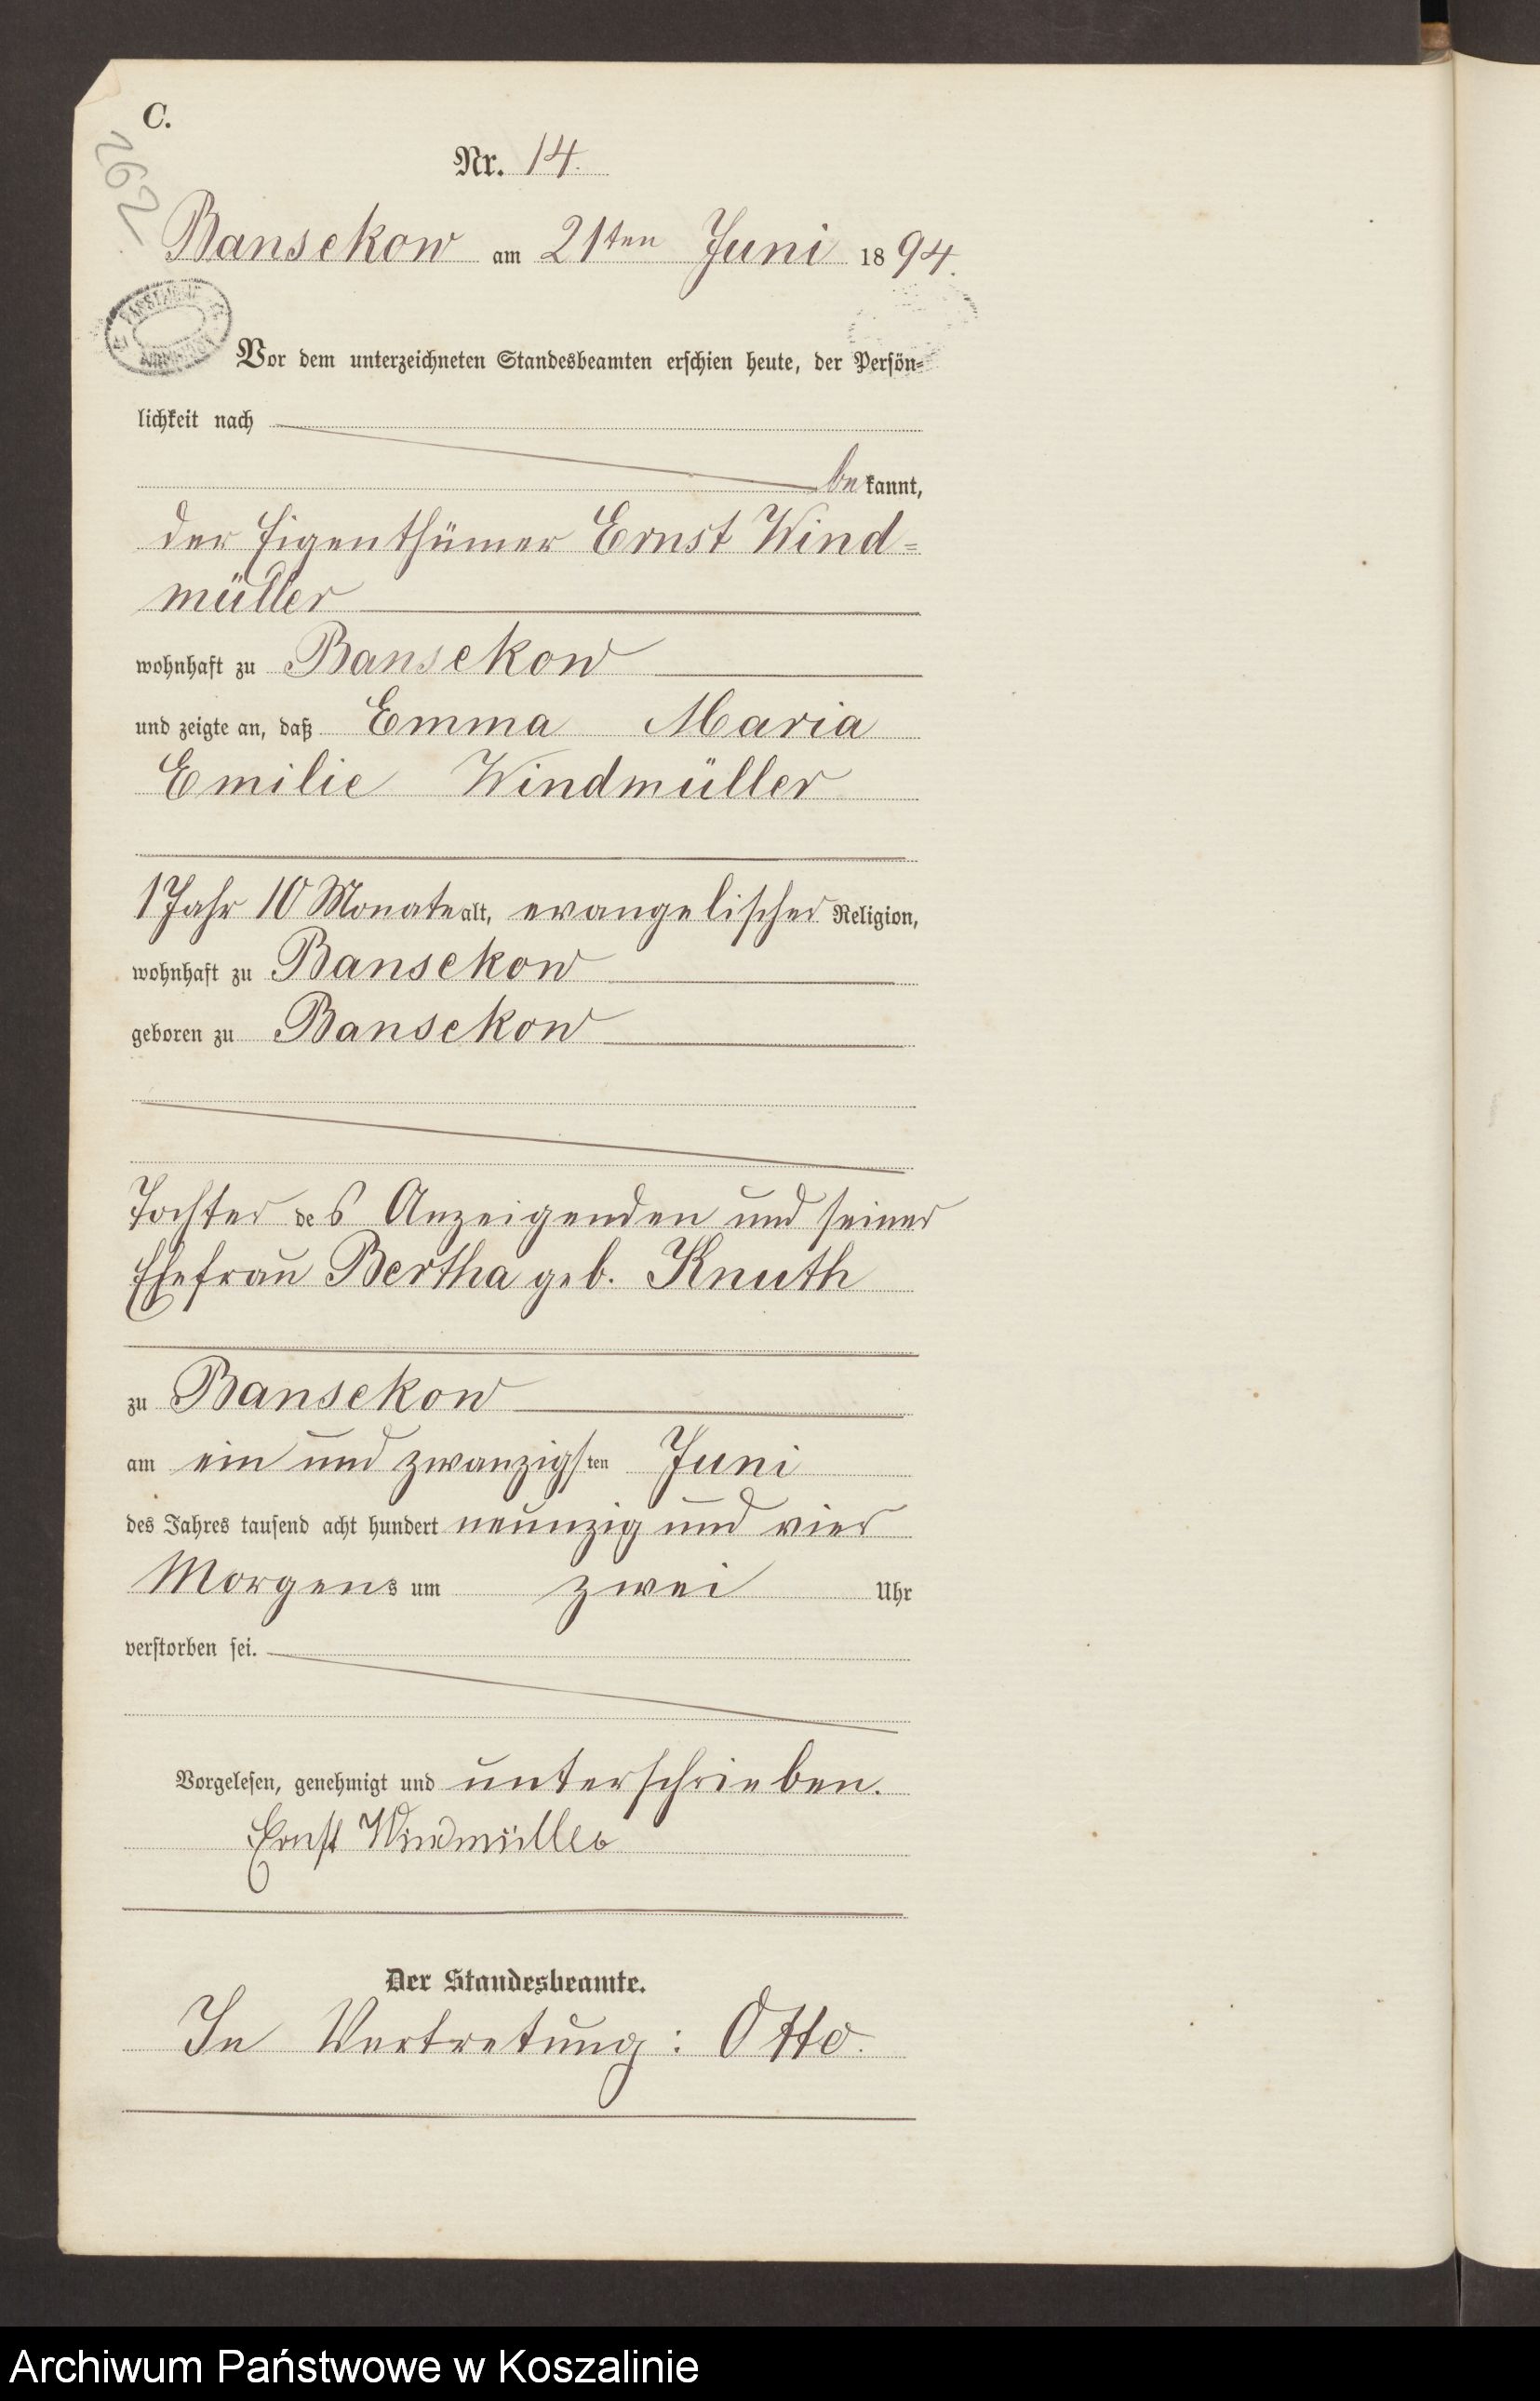 C.
262
Nr. 14.
Bansekow am 21ten Juni 1894.
Vor dem unterzeichneten Standesbeamten erschien heute, der Persön=
lichkeit nach
bekannt,
der Eigenthümer Ernst Wind=
müller
wohnhaft zu Bansekow
und zeigte an, daß Emma Maria
Emilie Windmüller
1 Jahr 10 Monate alt, evangelischer Religion,
wohnhaft zu Bansekow
geboren zu Bansekow
Tochter des Anzeigenden und seiner
Ehefrau Bertha geb. Knuth
zu Bansekow
am ein und zwanzigsten Juni
des Jahres tausend acht hundert neunzig und vier
Morgens um zwei Uhr
verstorben sei.
Vorgelesen, genehmigt und unterschrieben.
Ernst Windmüller
Der Standesbeamte.
In Vertretung: Otto.
Archiwum Państwowe w Koszalinie